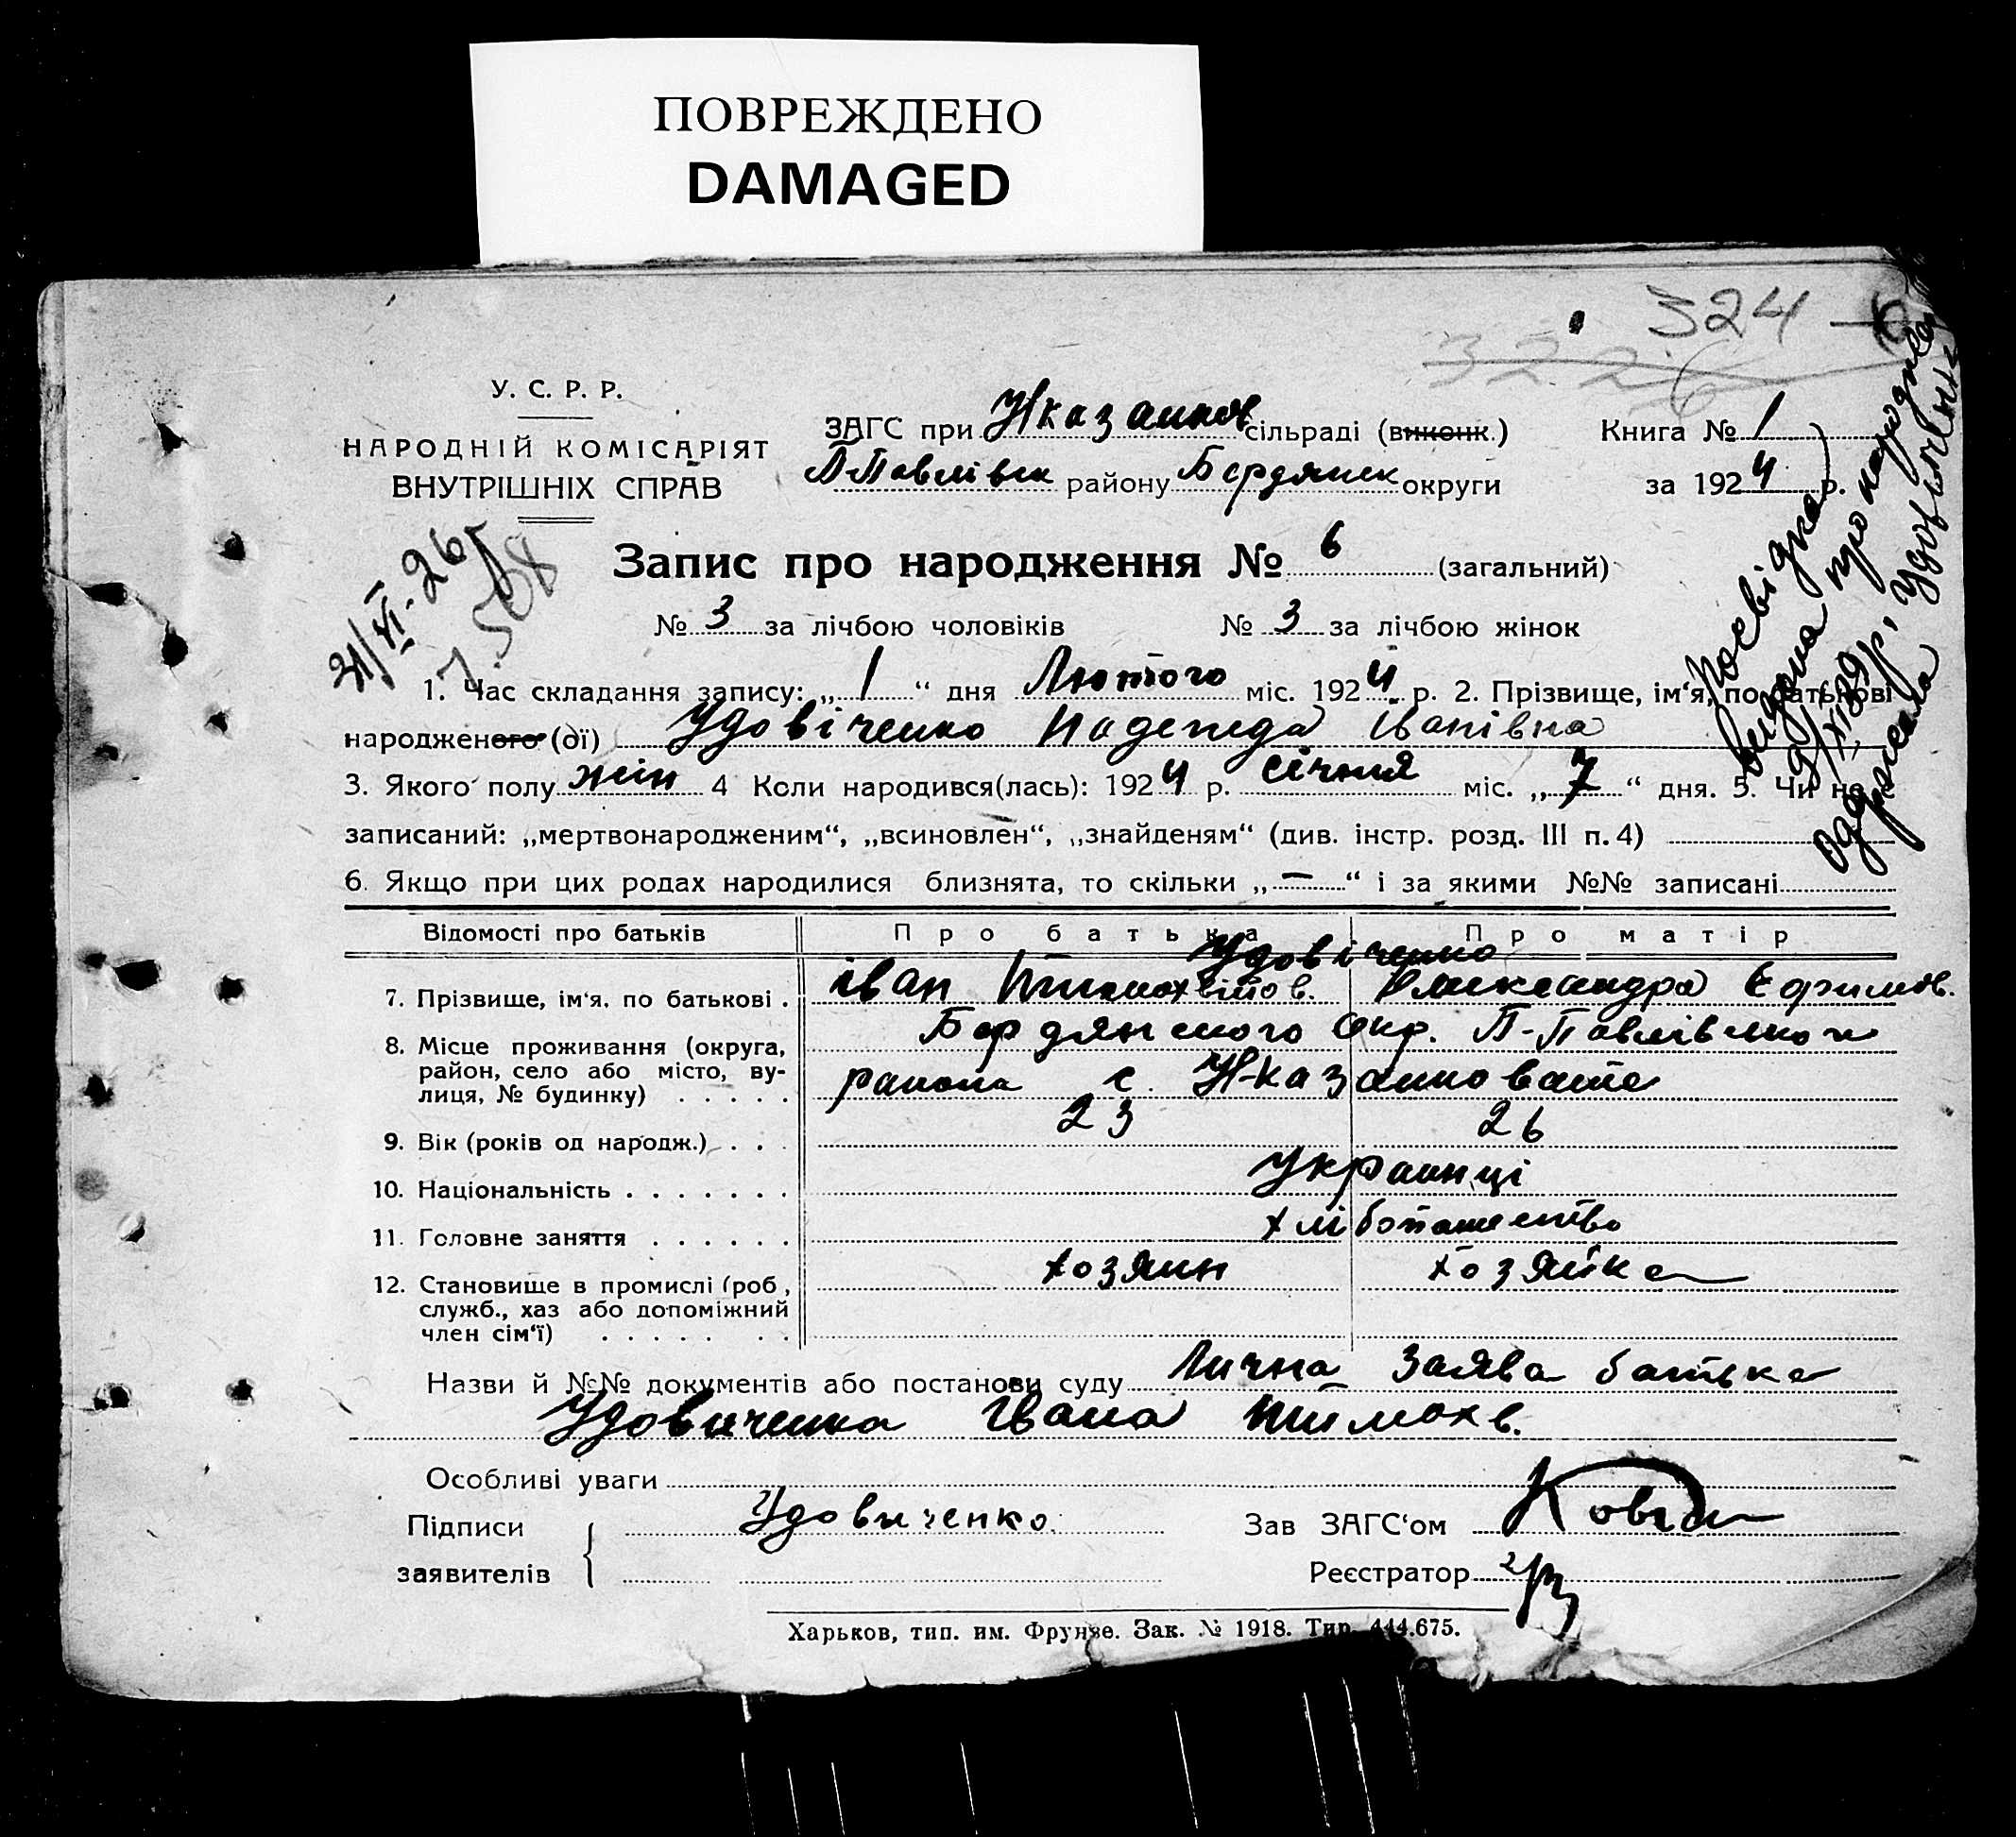 ПОВРЕЖДЕНО
DAMAGED
324
3226
У. С. Р. Р.
НАРОДНІЙ КОМІСАРІЯТ
ВНУТРІШНІХ СПРАВ
ЗАГС при Нказанков сільраді (виконк.)
П-Павлівск району Бердянск округи
Книга № 1
за 1924 р.
Запис про народження № 6 (загальний)
№ 3 за лічбою чоловіків № 3 за лічбою жінок
1. Час складання запису: „ 1 “ дня Лютого міс. 1924 р. 2. Прізвище, ім‘я, по батькові
народженого (ої) Удовіченко Надежда Іванівна
3. Якого полу жін 4 Коли народився(лась): 1924 р. січня міс. „ 7 “ дня. 5. Чи не
записаний: „мертвонародженим“, „всиновлен“, „знайденям“ (див. інстр. розд. III п. 4)
6. Якщо при цих родах народилися близнята, то скільки „ — “ і за якими №№ записані
Посвідка
видана про народжен
Одержала
Відомості про батьків Про батька Про матір
Удовіченко
7. Прізвище, ім‘я. по батькові . Іван Тимохвійов. Александра Єфимов.
8. Місце проживання (округа, Бердянского Окр. П-Павлівского
район, село або місто, ву-
лиця, № будинку) . . . . . района с. Н-казанковате
9. Вік (років од народж.) . . . 23 26
10. Національність . . . . . . . Украинці
11. Головне заняття . . . . . . хліботашество
12. Становище в промислі (роб., хозяин хозяйка
служб., хаз або допоміжний
член сім‘ї) . . . . . . .
Назви й №№ документів або постанови суду Лична заява батька
Удовиченка Івана Тимохв.
Особливі уваги
Підписи Удовиченко. Зав ЗАГС‘ом
заявителів Реєстратор
Харьков, тип. им. Фрунзе. Зак. № 1918. Тир. 444.675.